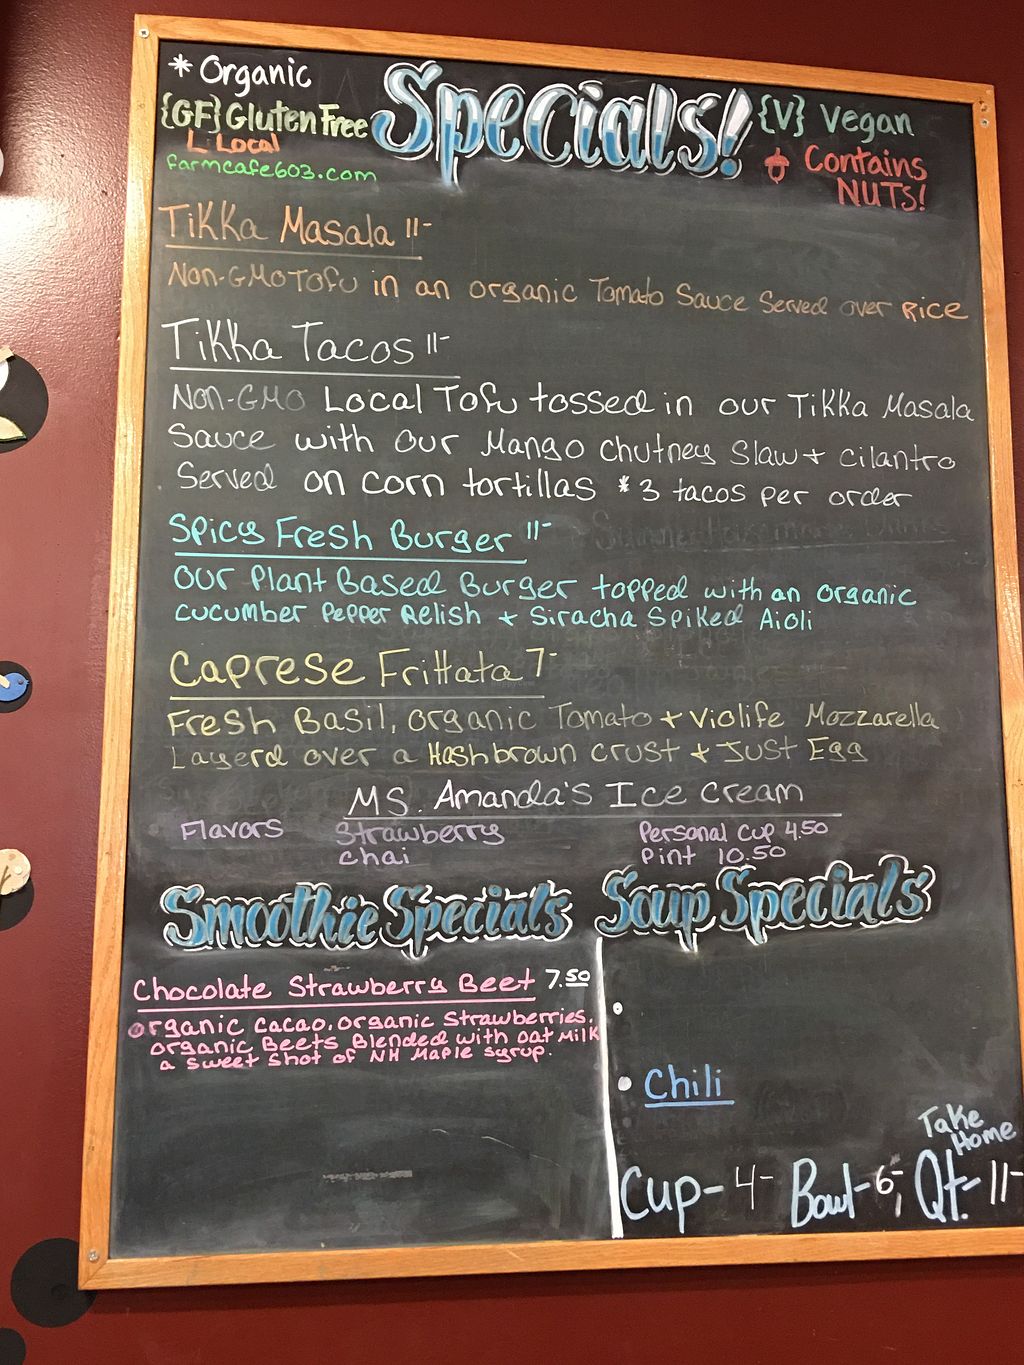 * Organic
{GF} Gluten Free
L: Local
farmcafe603.com
Specials!
{V} Vegan
Contains
NUTS!
Tikka Masala 11-
Non-GMO Tofu in an organic Tomato Sauce Served over Rice
Tikka Tacos 11-
Non-GMO Local Tofu tossed in our Tikka Masala
Sauce with our Mango Chutney Slaw + cilantro
Served on corn tortillas * 3 tacos per order
Spicy Fresh Burger 11-
Our Plant Based Burger topped with an organic
cucumber Pepper Relish + Siracha Spiked Aioli
Caprese Frittata 7-
Fresh Basil, organic Tomato + Violife Mozzarella
Layerd over a Hashbrown crust + Just Egg
Ms. Amanda's Ice Cream
Flavors Strawberry Personal Cup 4.50
Chai Pint 10.50
Smoothie Specials
Chocolate Strawberry Beet 7.50
organic cacao, organic strawberries,
organic Beets Blended with oat milk
a sweet shot of NH Maple syrup.
Soup Specials
• Chili
Take
Home
Cup- 4- Bowl- 6-, Qt.- 11-